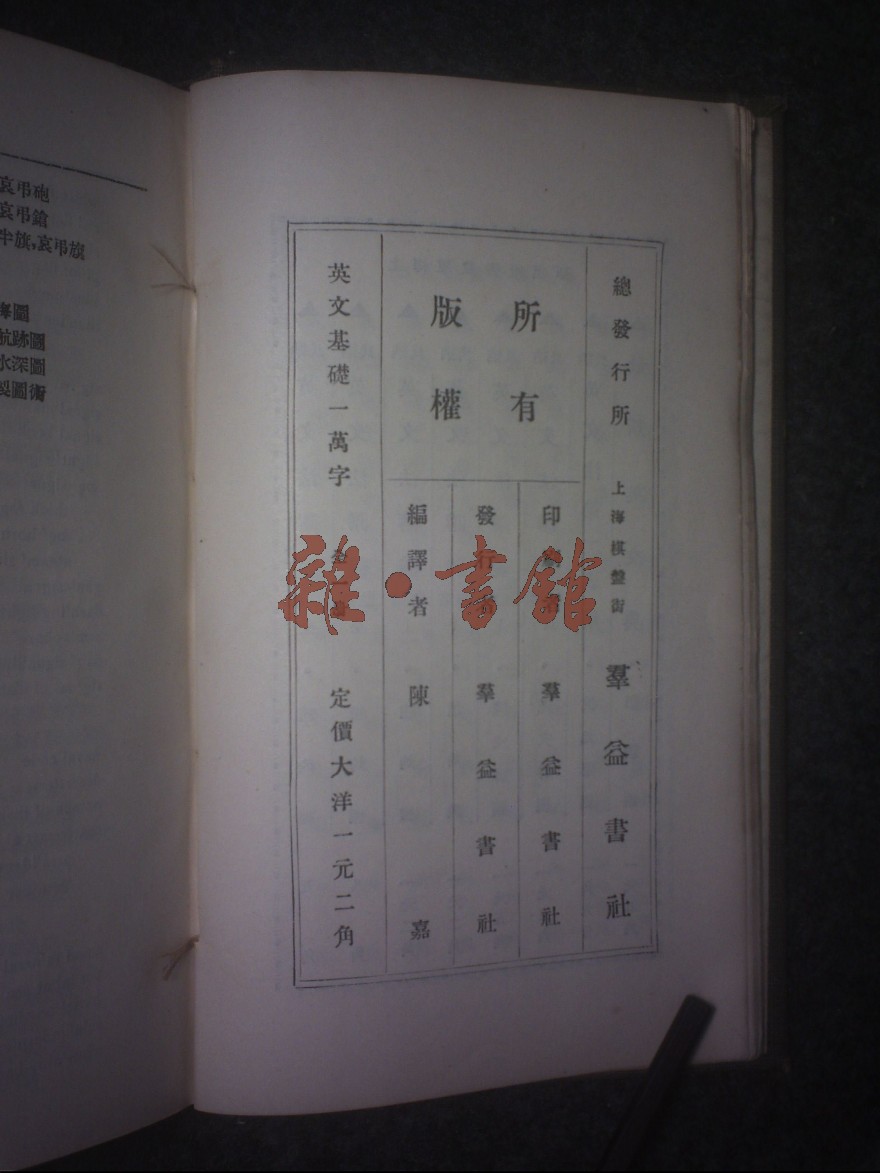 總發行所 上海棋盤街 羣益書社
版權
所有
印 羣益書社
發行 羣益書社
編譯者 陳嘉
英文基礎一萬字 定價大洋一元二角
哀弔砲
哀弔鎗
半旗,哀弔旗
海圖
航跡圖
水深圖
製圖術
雜·書館